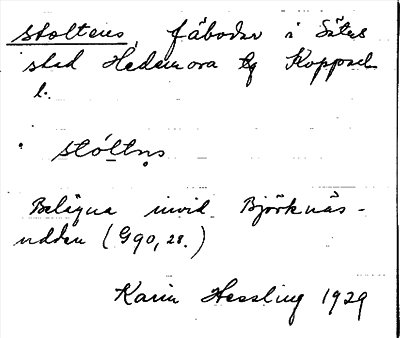 Stoltens, fäbodar i Säters
stad Hedemora tg Kopparb.
l.
stóltṇs
Belägna invid Björknäs-
udden (G90,28.)
Karin Hessling 1929